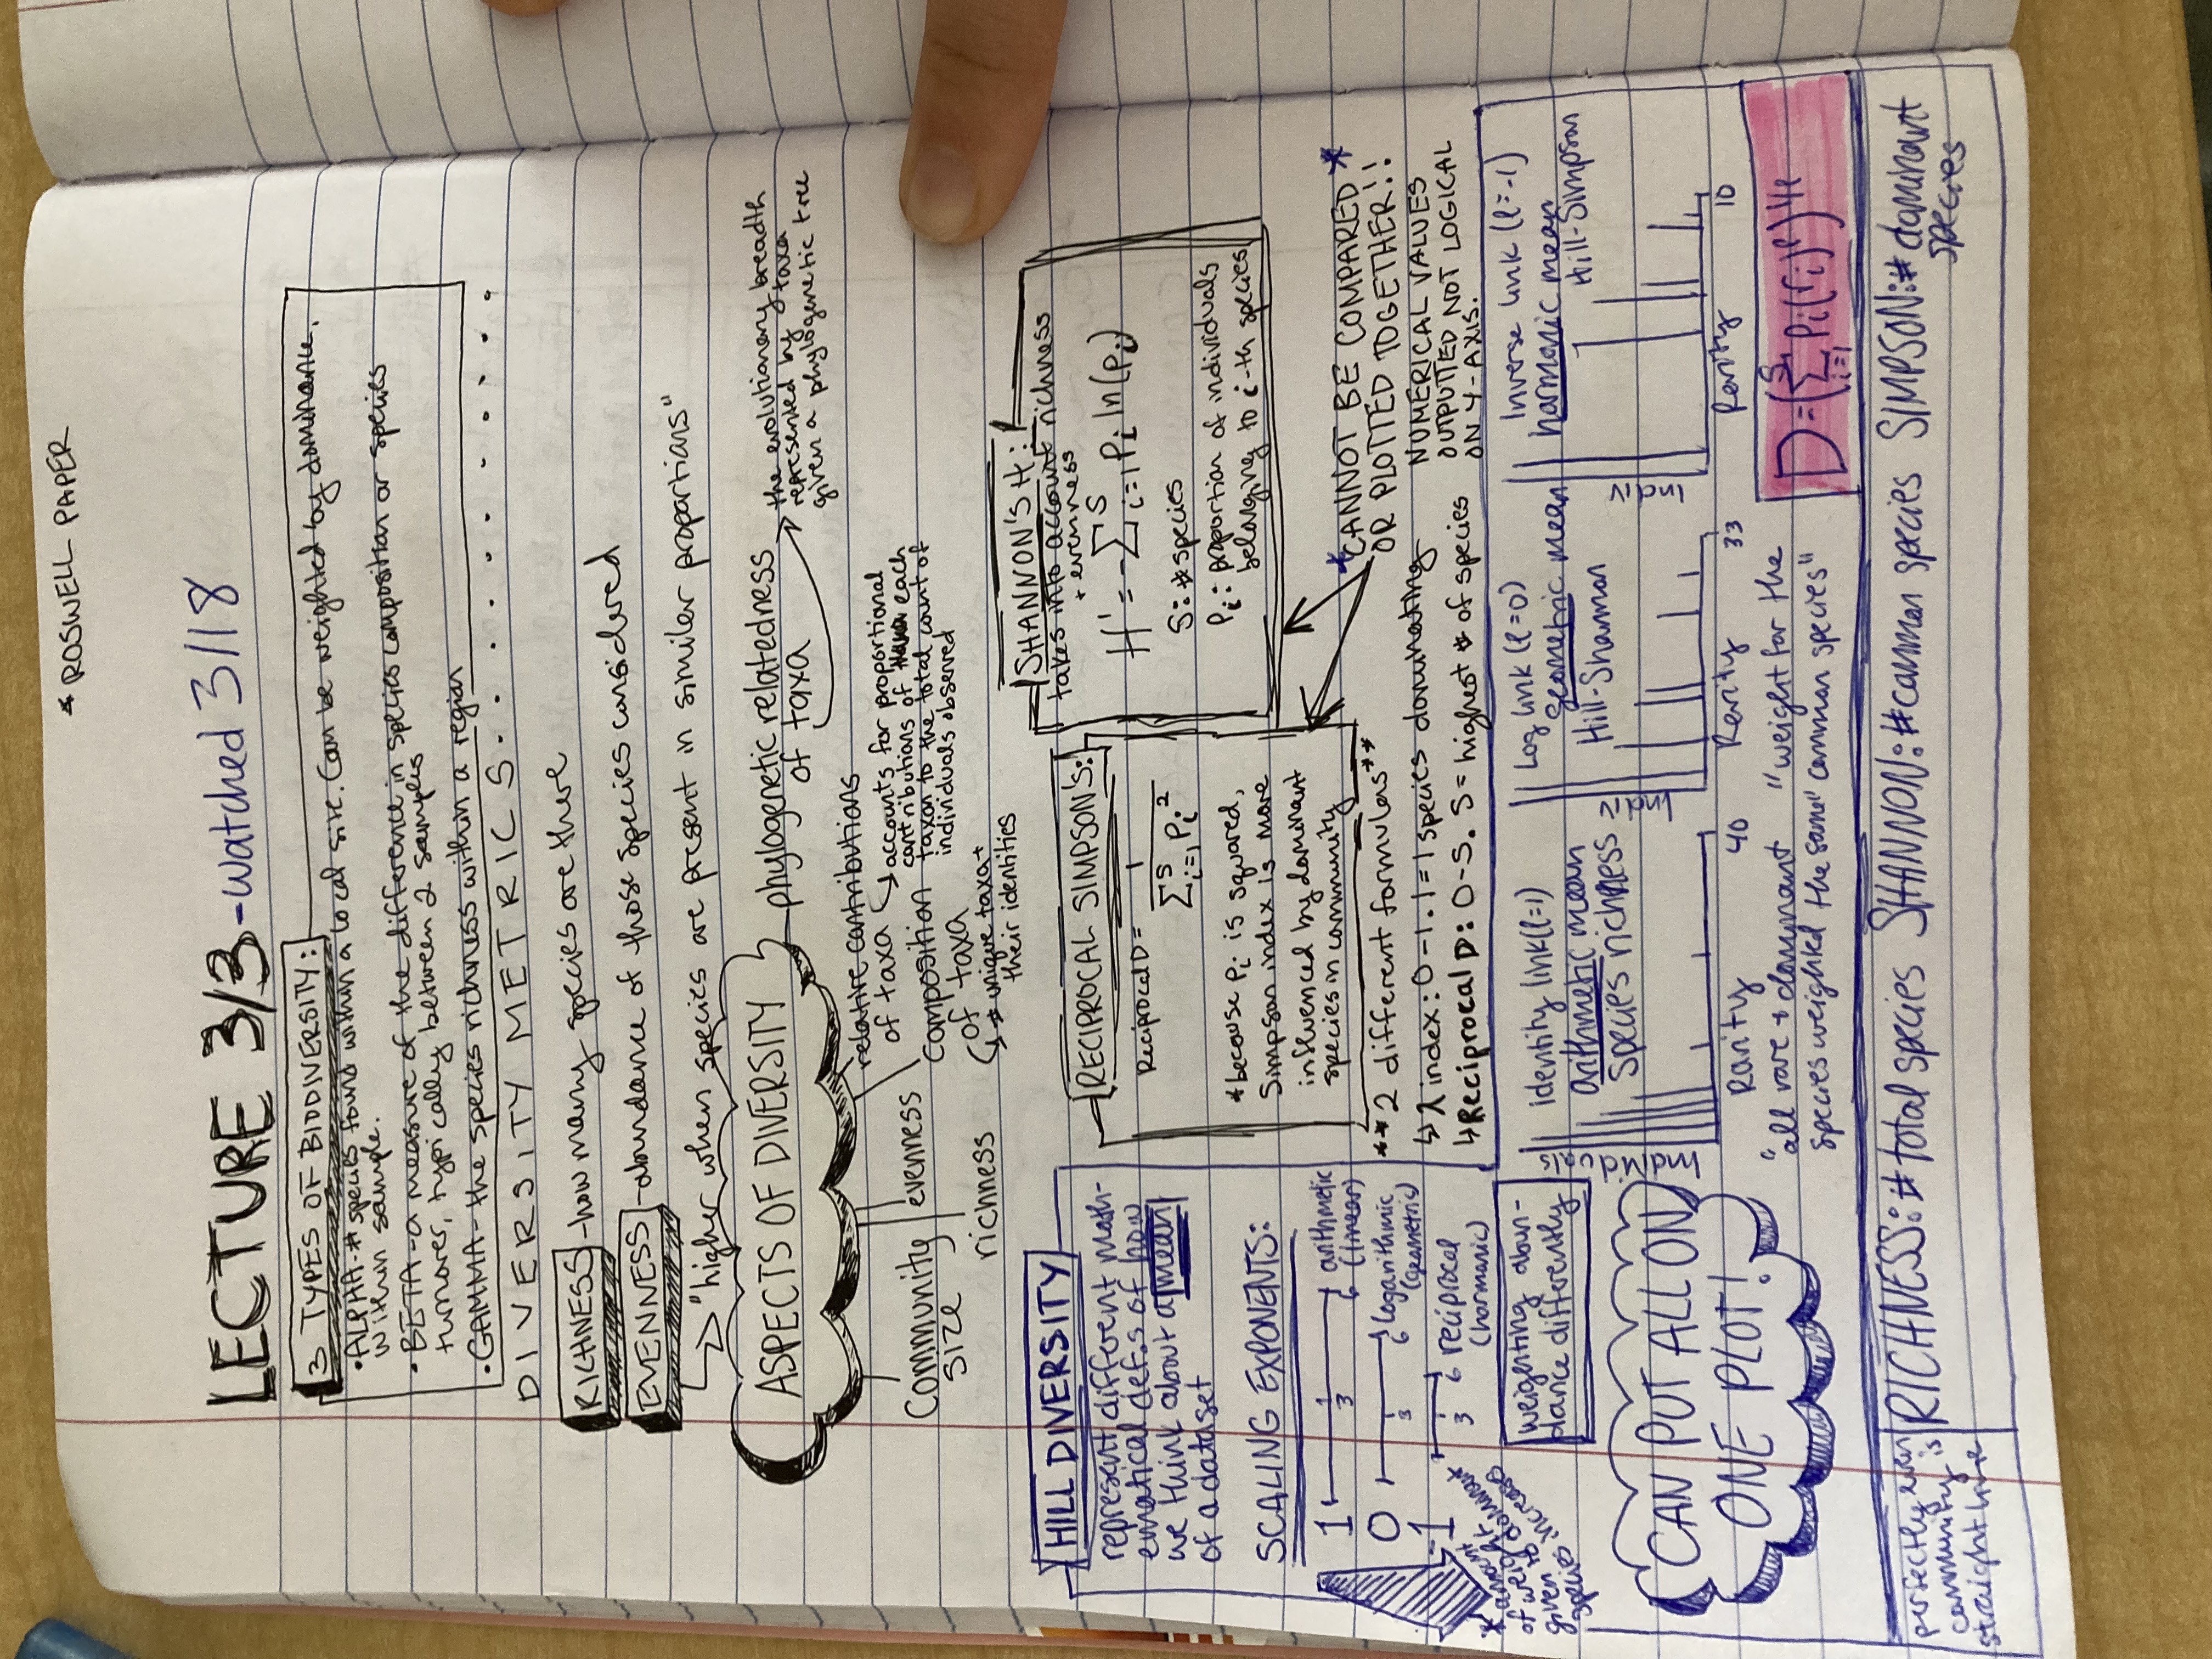 * ROSWELL PAPER
LECTURE 3/3 - watched 3/18
3 TYPES OF BIODIVERSITY:
• ALPHA - # species found within a local site. Can be weighted by dominance.
within sample.
• BETA - a measure of the difference in species composition or species
turnover, typically between 2 samples
• GAMMA - the species richness within a region
DIVERSITY METRICS . . . . . . . . . . .
RICHNESS - how many species are there
EVENNESS - abundance of those species considered
"higher when species are present in similar proportions"
ASPECTS OF DIVERSITY
phylogenetic relatedness
of taxa
the evolutionary breadth
represented by taxa
given a phylogenetic tree
Community
size
richness
evenness
relative contributions
of taxa
accounts for proportional
contributions of each
taxon to the total count of
individuals observed
Composition
of taxa
# unique taxa +
their identities
HILL DIVERSITY
represent different math-
ematical defns of how
we think about a mean
of a dataset
SCALING EXPONENTS:
1 1 3 6 arithmetic
(linear)
0 3 6 logarithmic
(geometric)
-1 3 6 reciprocal
(harmonic)
* amount
of weight
given to dominant
species increases
weighting abun-
dance differently
CAN PUT ALL ON
ONE PLOT!
RECIPROCAL SIMPSON'S:
Reciprocal D = 1 / ∑ˢᵢ₌₁ pᵢ²
*because pᵢ is squared,
Simpson index is more
influenced by dominant
species in community
SHANNON'S H:
takes into account richness
+ evenness
H' = -∑ˢᵢ₌₁ pᵢ ln(pᵢ)
S: # species
Pᵢ: proportion of individuals
belonging to i-th species
**2 different formulas**
↳ λ index: 0-1. 1 = 1 species dominating
↳ Reciprocal D: 0-S. S = highest # of species
*CANNOT BE COMPARED*
OR PLOTTED TOGETHER!!
NUMERICAL VALUES
OUTPUTTED NOT LOGICAL
ON Y-AXIS.
Individuals
identity link (ℓ=1)
arithmetic mean
species richness
Rarity 40
Indiv
Log link (ℓ=0)
geometric mean
Hill-Shannon
Rarity 33
Indiv
Inverse link (ℓ=-1)
harmonic mean
Hill-Simpson
Rarity 10
"all rare + dominant
species weighted the same"
"weight for the
common species"
D = (∑ˢᵢ₌₁ pᵢ(rᵢ)^ℓ)^1/ℓ
perfectly even
community is
straight line
RICHNESS: # total species SHANNON: # common species SIMPSON: # dominant
species